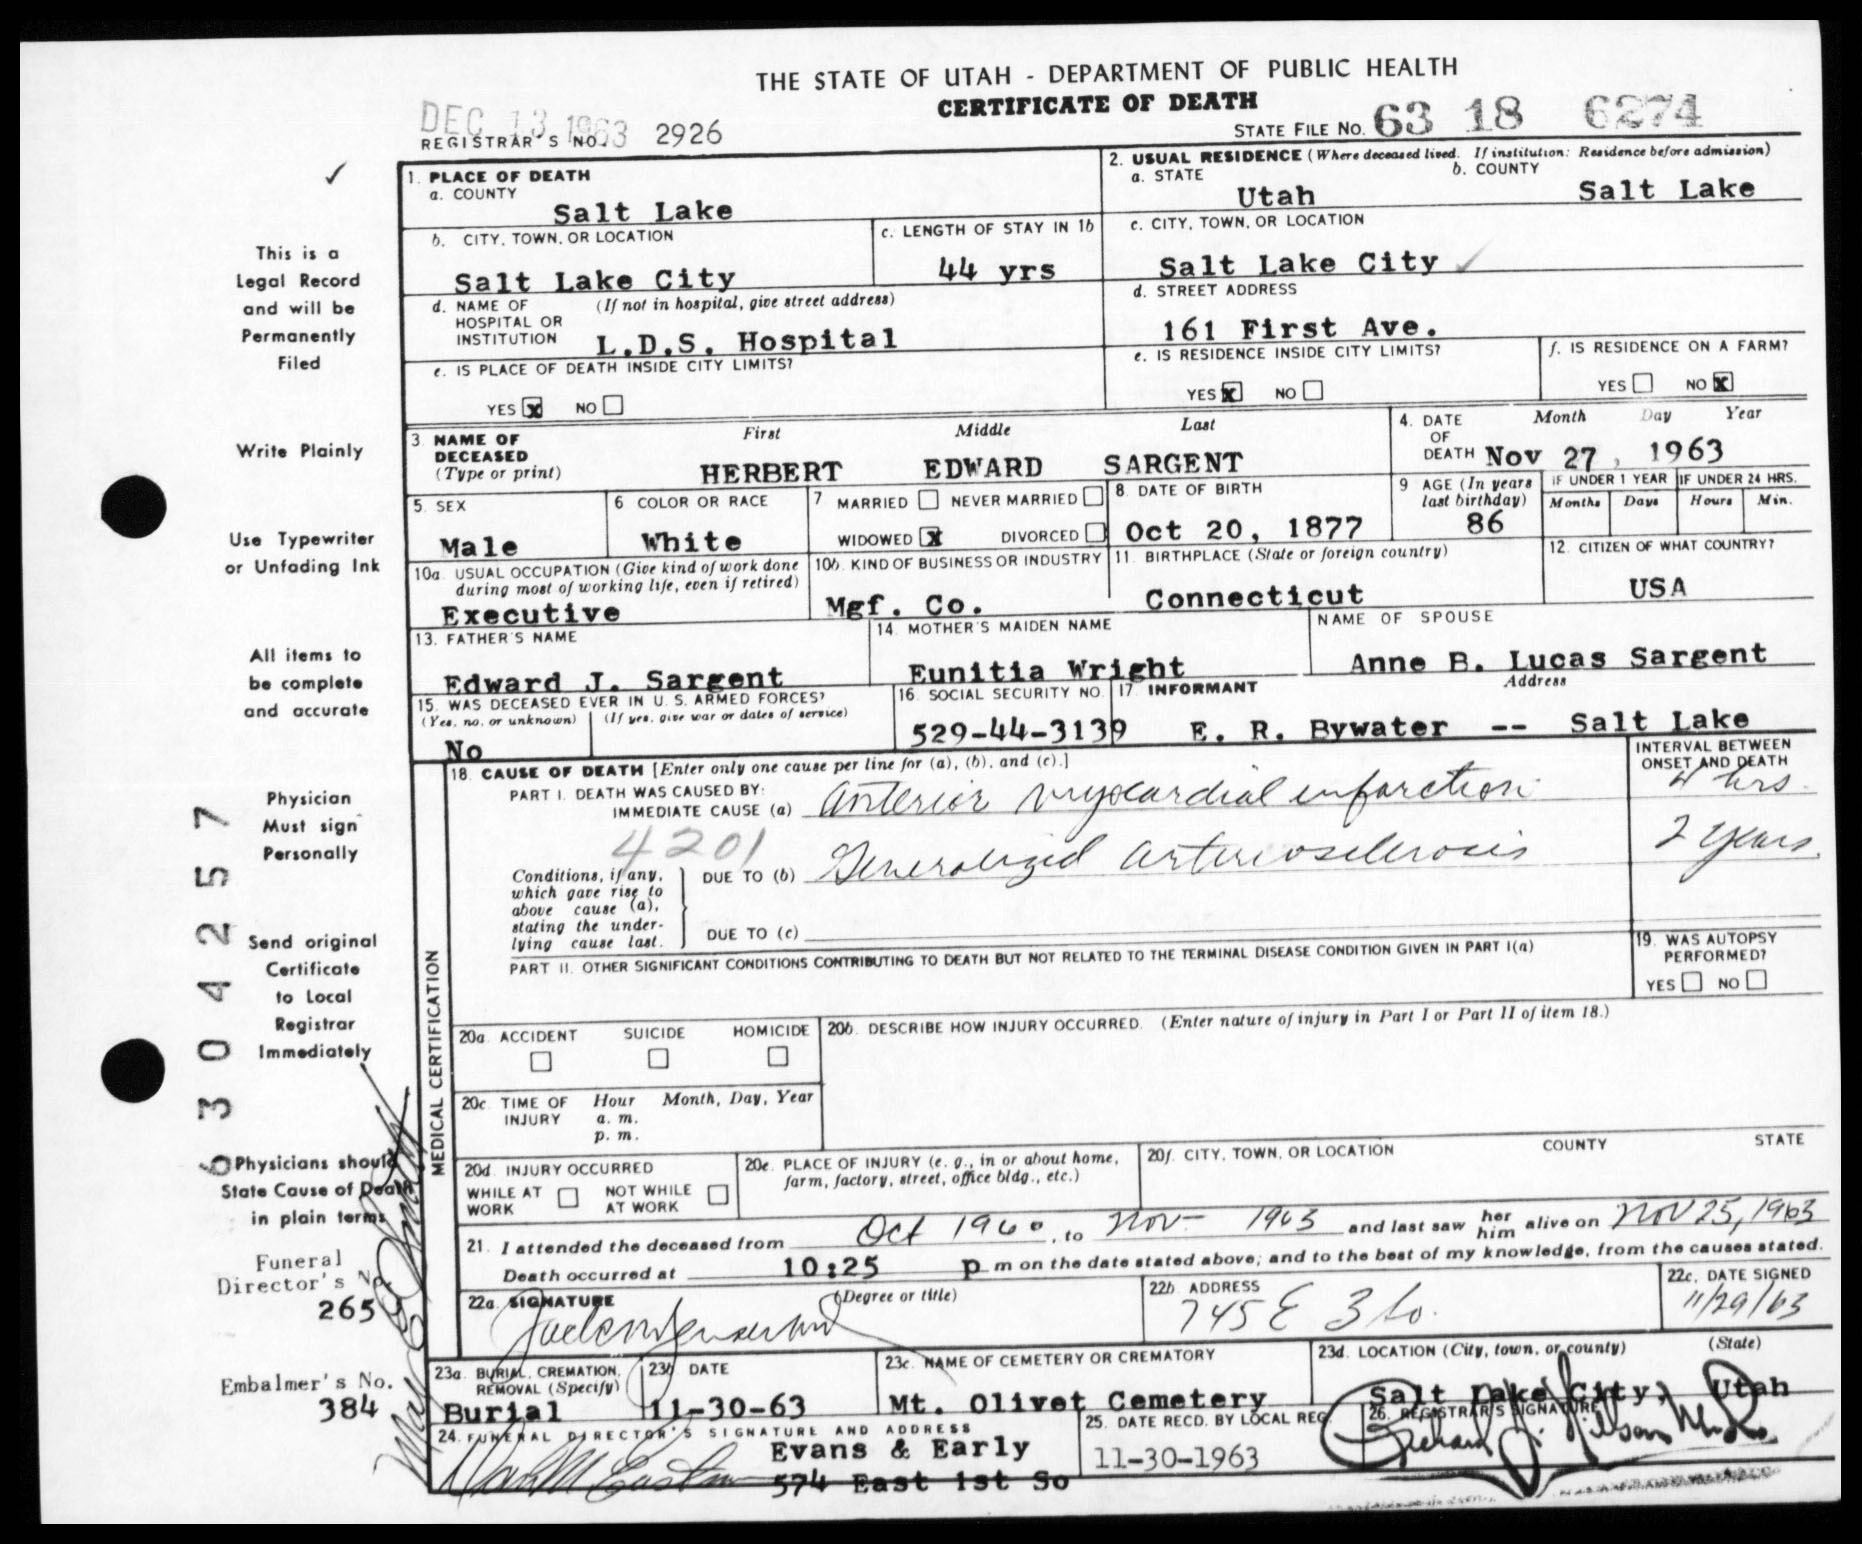 THE STATE OF UTAH - DEPARTMENT OF PUBLIC HEALTH
CERTIFICATE OF DEATH
DEC 13 1963
REGISTRAR'S NO. 2926
STATE FILE NO. 63 18 6274
1. PLACE OF DEATH
a. COUNTY
Salt Lake
2. USUAL RESIDENCE (Where deceased lived. If institution: Residence before admission)
a. STATE
Utah
b. COUNTY
Salt Lake
b. CITY, TOWN, OR LOCATION
Salt Lake City
c. LENGTH OF STAY IN 1b
44 yrs
c. CITY, TOWN, OR LOCATION
Salt Lake City
d. NAME OF HOSPITAL OR INSTITUTION (If not in hospital, give street address)
L.D.S. Hospital
d. STREET ADDRESS
161 First Ave.
e. IS PLACE OF DEATH INSIDE CITY LIMITS?
YES X NO
e. IS RESIDENCE INSIDE CITY LIMITS?
YES X NO
f. IS RESIDENCE ON A FARM?
YES NO X
3. NAME OF DECEASED (Type or print)
First Middle Last
HERBERT EDWARD SARGENT
4. DATE OF DEATH
Month Day Year
Nov 27, 1963
5. SEX
Male
6 COLOR OR RACE
White
7 MARRIED NEVER MARRIED
WIDOWED X DIVORCED
8. DATE OF BIRTH
Oct 20, 1877
9 AGE (In years last birthday)
86
IF UNDER 1 YEAR
Months Days
IF UNDER 24 HRS.
Hours Min.
10a. USUAL OCCUPATION (Give kind of work done during most of working life, even if retired)
Executive
10b. KIND OF BUSINESS OR INDUSTRY
Mgf. Co.
11. BIRTHPLACE (State or foreign country)
Connecticut
12. CITIZEN OF WHAT COUNTRY?
USA
13. FATHER'S NAME
Edward J. Sargent
14. MOTHER'S MAIDEN NAME
Eunitia Wright
NAME OF SPOUSE
Anne B. Lucas Sargent
15. WAS DECEASED EVER IN U.S. ARMED FORCES?
(Yes, no, or unknown) (If yes, give war or dates of service)
No
16. SOCIAL SECURITY NO.
529-44-3139
17. INFORMANT Address
E. R. Bywater -- Salt Lake
MEDICAL CERTIFICATION
18. CAUSE OF DEATH [Enter only one cause per line for (a), (b), and (c).]
INTERVAL BETWEEN ONSET AND DEATH
PART I. DEATH WAS CAUSED BY:
IMMEDIATE CAUSE (a) Anterior myocardial infarction
4 hrs.
4201
Conditions, if any, which gave rise to above cause (a), stating the underlying cause last.
DUE TO (b) Generalized arteriosclerosis
2 years.
DUE TO (c)
PART II. OTHER SIGNIFICANT CONDITIONS CONTRIBUTING TO DEATH BUT NOT RELATED TO THE TERMINAL DISEASE CONDITION GIVEN IN PART I(a)
19. WAS AUTOPSY PERFORMED?
YES NO
20a. ACCIDENT SUICIDE HOMICIDE
20b. DESCRIBE HOW INJURY OCCURRED. (Enter nature of injury in Part I or Part II of item 18.)
20c. TIME OF INJURY Hour Month, Day, Year
a. m.
p. m.
20d. INJURY OCCURRED
WHILE AT WORK NOT WHILE AT WORK
20e. PLACE OF INJURY (e. g., in or about home, farm, factory, street, office bldg., etc.)
20f. CITY, TOWN, OR LOCATION COUNTY STATE
21. I attended the deceased from Oct 1960, to Nov- 1963 and last saw her him alive on Nov 25, 1963
Death occurred at 10:25 p m on the date stated above; and to the best of my knowledge, from the causes stated.
22a. SIGNATURE (Degree or title)
22b. ADDRESS
745 E 3 So.
22c. DATE SIGNED
11/29/63
23a. BURIAL, CREMATION, REMOVAL (Specify)
Burial
23b DATE
11-30-63
23c. NAME OF CEMETERY OR CREMATORY
Mt. Olivet Cemetery
23d. LOCATION (City, town, or county) (State)
Salt Lake City, Utah
24. FUNERAL DIRECTOR'S SIGNATURE AND ADDRESS
Evans & Early
574 East 1st So
25. DATE RECD. BY LOCAL REG.
11-30-1963
26. REGISTRAR'S SIGNATURE
This is a
Legal Record
and will be
Permanently
Filed
Write Plainly
Use Typewriter
or Unfading Ink
All items to
be complete
and accurate
Physician
Must sign
Personally
Send original
Certificate
to Local
Registrar
Immediately
Physicians should
State Cause of Death
in plain terms
Funeral
Director's No.
265
Embalmer's No.
384
6304257